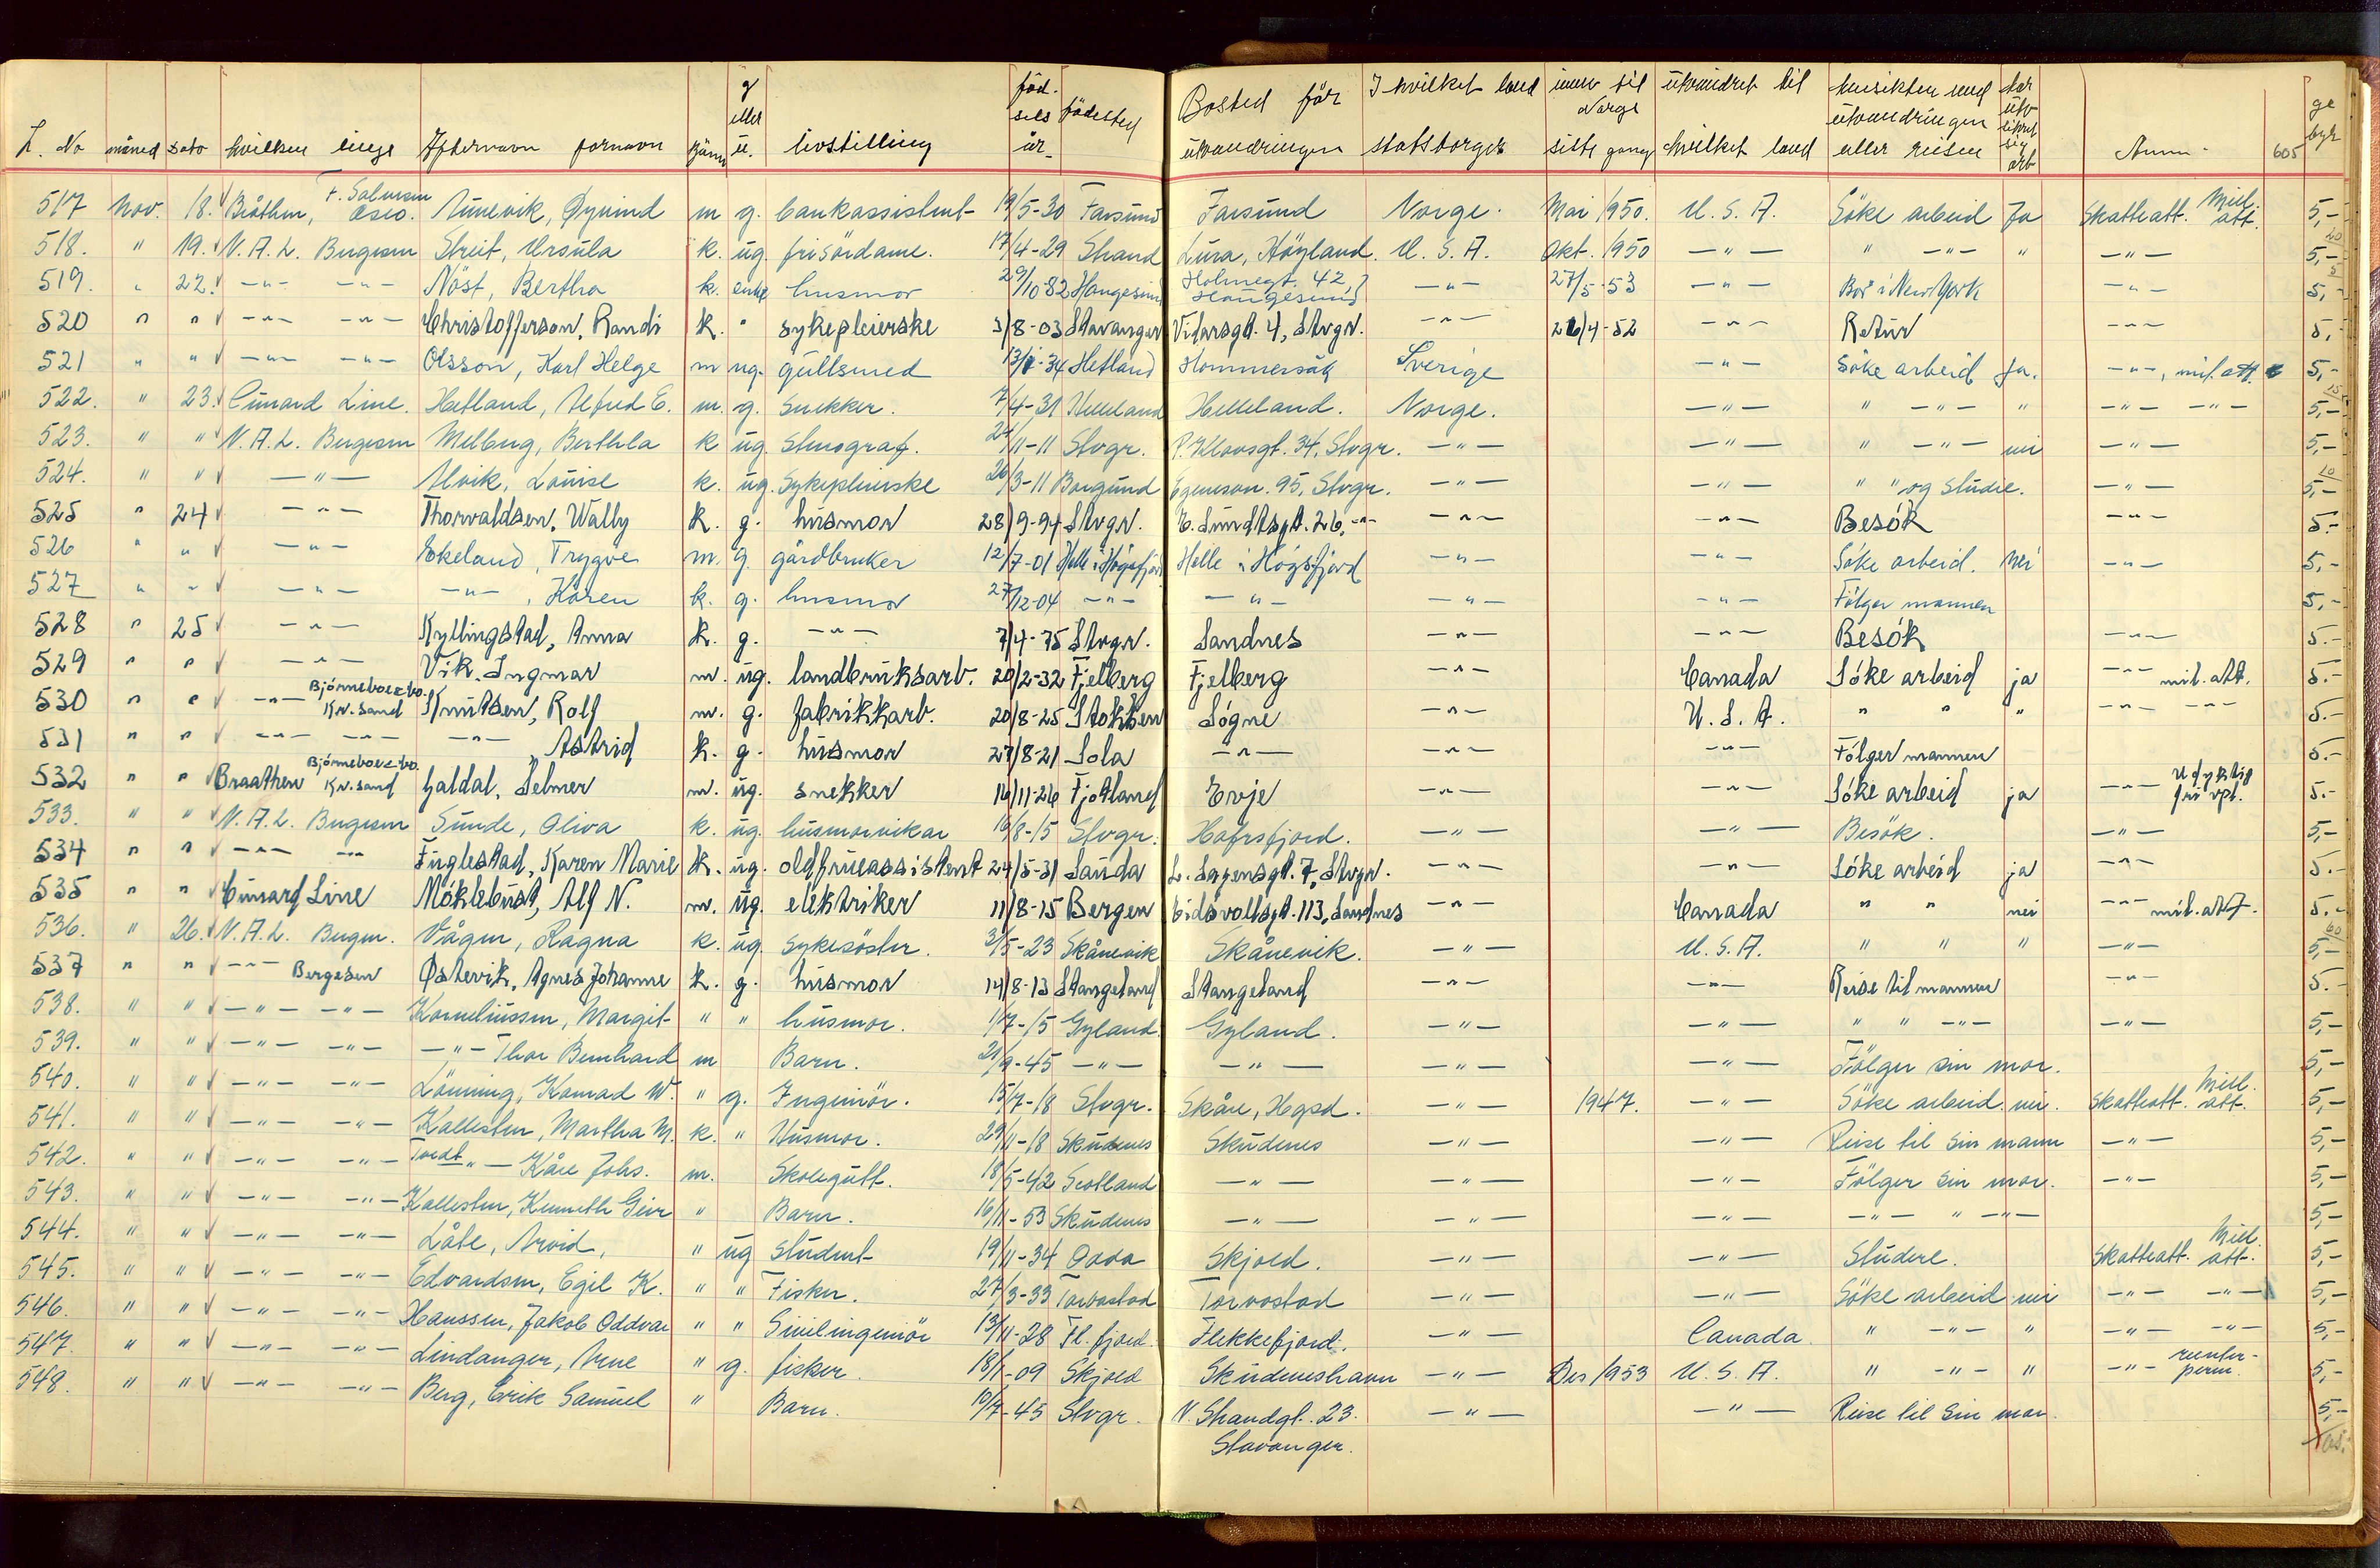 L. No måned dato hvilken linge Eftermavn fornavn kjønn g eller ü. livstilling föd-sels år- födested Bosted för ütvandringen I hvilket land statsborger innv til Norge siste gang ütvandret til hvilket land hensikten med ütvandringen eller reisen har ütv sikret sig arb Anm- 605 ge byr
517 Nov. 18. Bråthen, F. Salvesen Oslo. Aunevik, Øyvind m g. bankassistent 19/5-30 Farsund Farsund Norge. Mai 1950. U.S.A. Söke arbeid Ja Skatteatt. Mil. att. 5,-
518. " 19. N.A.L. Bergesen Streit, Ursula k. ug. frisördame. 17/4-29 Strand Lura, Höyland. U.S.A. Okt. 1950 -"- " -"- " -"- 5,- 20
519. " 22. -"- -"- Nöst, Bertha k. enke husmor 29/10-82 Haugesund Holmegt. 42, Haugesund -"- 27/5-53 -"- Bor i New York -"- 5,- 5
520 " " -"- -"- Christofferson, Randi k. " sykepleierske 3/8-03 Stavanger Vidarsgt. 4, Stvgr. -"- 26/4-52 -"- Retur -"- 5,-
521 " " -"- -"- Olsson, Karl Helge m ug. gullsmed 13/1-34 Hetland Hommersåk Sverige -"- Söke arbeid Ja. -"-, mil. att. 5,-
522. " 23. Cunard Line. Hetland, Alfred E. m. g. Snekker. 7/4-31 Helleland Helleland. Norge. -"- " -"- " -"- -"- 5,- 15
523. " " N.A.L. Bergesen Melberg, Berthla k ug. Stenograf. 24/11-11 Stvgr. P. Klowsgt. 34, Stvgr. -"- -"- " -"- nei -"- 5,-
524. " " -"- Alvik, Louise k. ug. Sykepleierske 26/3-11 Borgund Egenesvn. 95, Stvgr. -"- -"- " " og studie. -"- 5,- 10
525 " 24 -"- Thorvaldsen, Wally k. g. husmor 28/9-94 Stvgr. E. Sundtsgt. 26, -"- -"- -"- Besök -"- 5.-
526 " " -"- Eskeland, Trygve m. g. gårdbruker 12/7-01 Helle i Högsfjord Helle i Högsfjord -"- -"- Söke arbeid. Nei -"- 5,-
527 " " -"- -"-, Karen k. g. husmor 27/12-04 -"- -"- -"- -"- Fölger mannen 5,-
528 " 25 -"- Kyllingstad, Anna k. g. -"- 7/4-75 Stvgr. Sandnes -"- -"- Besök -"- 5.-
529 " " -"- Vik, Ingmar m. ug. landbruksarb. 20/2-32 Fjelberg Fjelberg -"- Canada Söke arbeid ja -"- mil. att. 5.-
530 " " -"- Björneboe & co. Kr. sand Knutsen, Rolf m. g. fabrikkarb. 20/8-25 Stokken Sögne -"- U.S.A. " " " -"- -"- 5.-
531 " " -"- -"- -"-, Astrid k. g. husmor 27/8-21 Sola -"- -"- -"- Fölger mannen 5.-
532 " " Braathen Björneboe & co. Kr. sand Galdal, Selmer m. ug. snekker 14/11-26 Fjotland Evje -"- -"- Söke arbeid ja -"- Udyktig for vpl. 5.-
533. " " N.A.L. Bergesen Sunde, Oliva k. ug. husmorvikar 16/8-15 Stvgr. Hafrsfjord. -"- -"- Besök. -"- 5,-
534 " " -"- -"- Fuglestad, Karen Marie k. ug. oldfrueassistent 24/5-31 Sauda L. Sagensgt. 7, Stvgr. -"- -"- Söke arbeid ja -"- 5.-
535 " " Cunard Line Möklebust, Alf N. m. ug. elektriker 11/8-15 Bergen Eidsvollsgt. 113, Sandnes -"- Canada " " nei -"- mil. att. 5.-
536. " 26. N.A.L. Bergen. Vågen, Ragna k. ug. sykesöster. 3/5-23 Skånevik Skånevik. -"- U.S.A. " " " -"- 5,- 60
537 " " -"- Bergesen Østevik, Agnes Johanne k. g. husmor 14/8-13 Stangeland Stangeland -"- -"- Reise til mannen -"- 5.-
538. " " -"- -"- Korneliussen, Margit " " husmor. 1/7-15 Gyland. Gyland. -"- -"- " " -"- -"- 5,-
539. " " -"- -"- -"- Thor Bernhard m Barn. 21/9-45 -"- -"- -"- -"- Fölger sin mor. 5,-
540. " " -"- -"- Lönning, Konrad W. " g. Ingeniör. 15/7-18 Stvgr. Skåre, Hgsd. -"- 1947. -"- Söke arbeid nei. Skatteatt. Mil. att. 5,-
541. " " -"- -"- Kallesten, Martha M. k. " Husmor. 29/11-18 Skudenes Skudenes -"- -"- Reise til sin mann -"- 5,-
542. " " -"- -"- Tveidt -"- Kåre Johs. m. Skolegutt. 18/5-42 Scotland -"- -"- -"- Fölger sin mor. -"- 5,-
543. " " -"- -"- Kallesten, Kenneth Geir " Barn. 16/11-53 Skudenes -"- -"- -"- -"- " -"- 5,-
544. " " -"- -"- Låte, Arvid, " ug student 19/11-34 Odda Skjold. -"- -"- Studere. Skatteatt. Mil. att. 5,-
545. " " -"- -"- Edvardsen, Egil K. " " Fisker. 27/3-33 Torvastad Torvastad -"- -"- Söke arbeid nei -"- -"- 5,-
546. " " -"- -"- Hanssen, Jakob Oddvar " " Sivilingeniör 13/11-28 Fl. fjord. Flekkefjord. -"- Canada. " -"- " -"- -"- 5,-
547. " " -"- -"- Lindanger, Arne " g. fisker. 18/1-09 Skjold Skudeneshavn -"- Des 1953 U.S.A. " -"- " -"- reenter-perm. 5,-
548. " " -"- -"- Berg, Erik Samuel " Barn. 10/7-45 Stvgr. N. Strandgt. 23. Stavanger. -"- -"- Reise til sin mor. 5,-